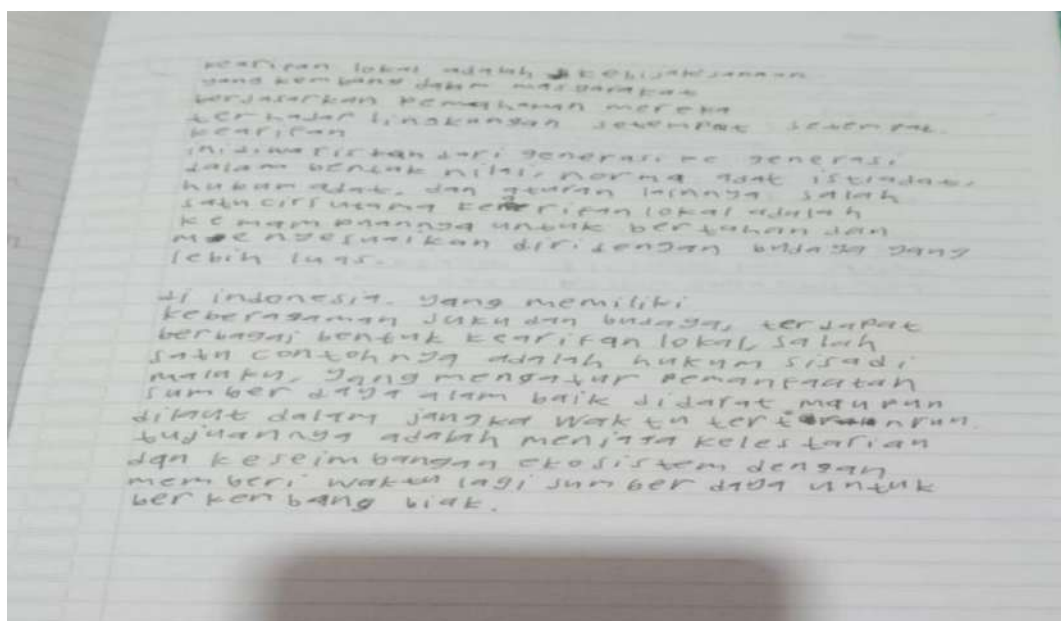 kearifan lokal adalah kebijaksanaan
yang kembang dalam masyarakat
berdasarkan pemahaman mereka
terhadar lingkangan setempat setempat.
kearifan
ini diwariskan dari generasi ke generasi
dalam bentuk nilai, norma adat istiadat,
hukum adat, dan aturan lainnya. salah
satu ciri utama kearifan lokal adalah
kemampuannya untuk bertahan dan
menyesuaikan diri dengan budaya yang
lebih luas.
di indonesia. yang memiliki
keberagaman suku dan budaya, terdapat
berbagai bentuk kearifan lokal, salah
satu contohnya adalah hukum sisadi
maluku, yang mengatur pemanfaatan
sumber daya alam baik didarat maupun
dilaut dalam jangka waktu
tujuannya adalah menjaga kelestarian
dan keseimbangan ekosistem dengan
memberi waktu lagi sumber daya untuk
berkembang biak.